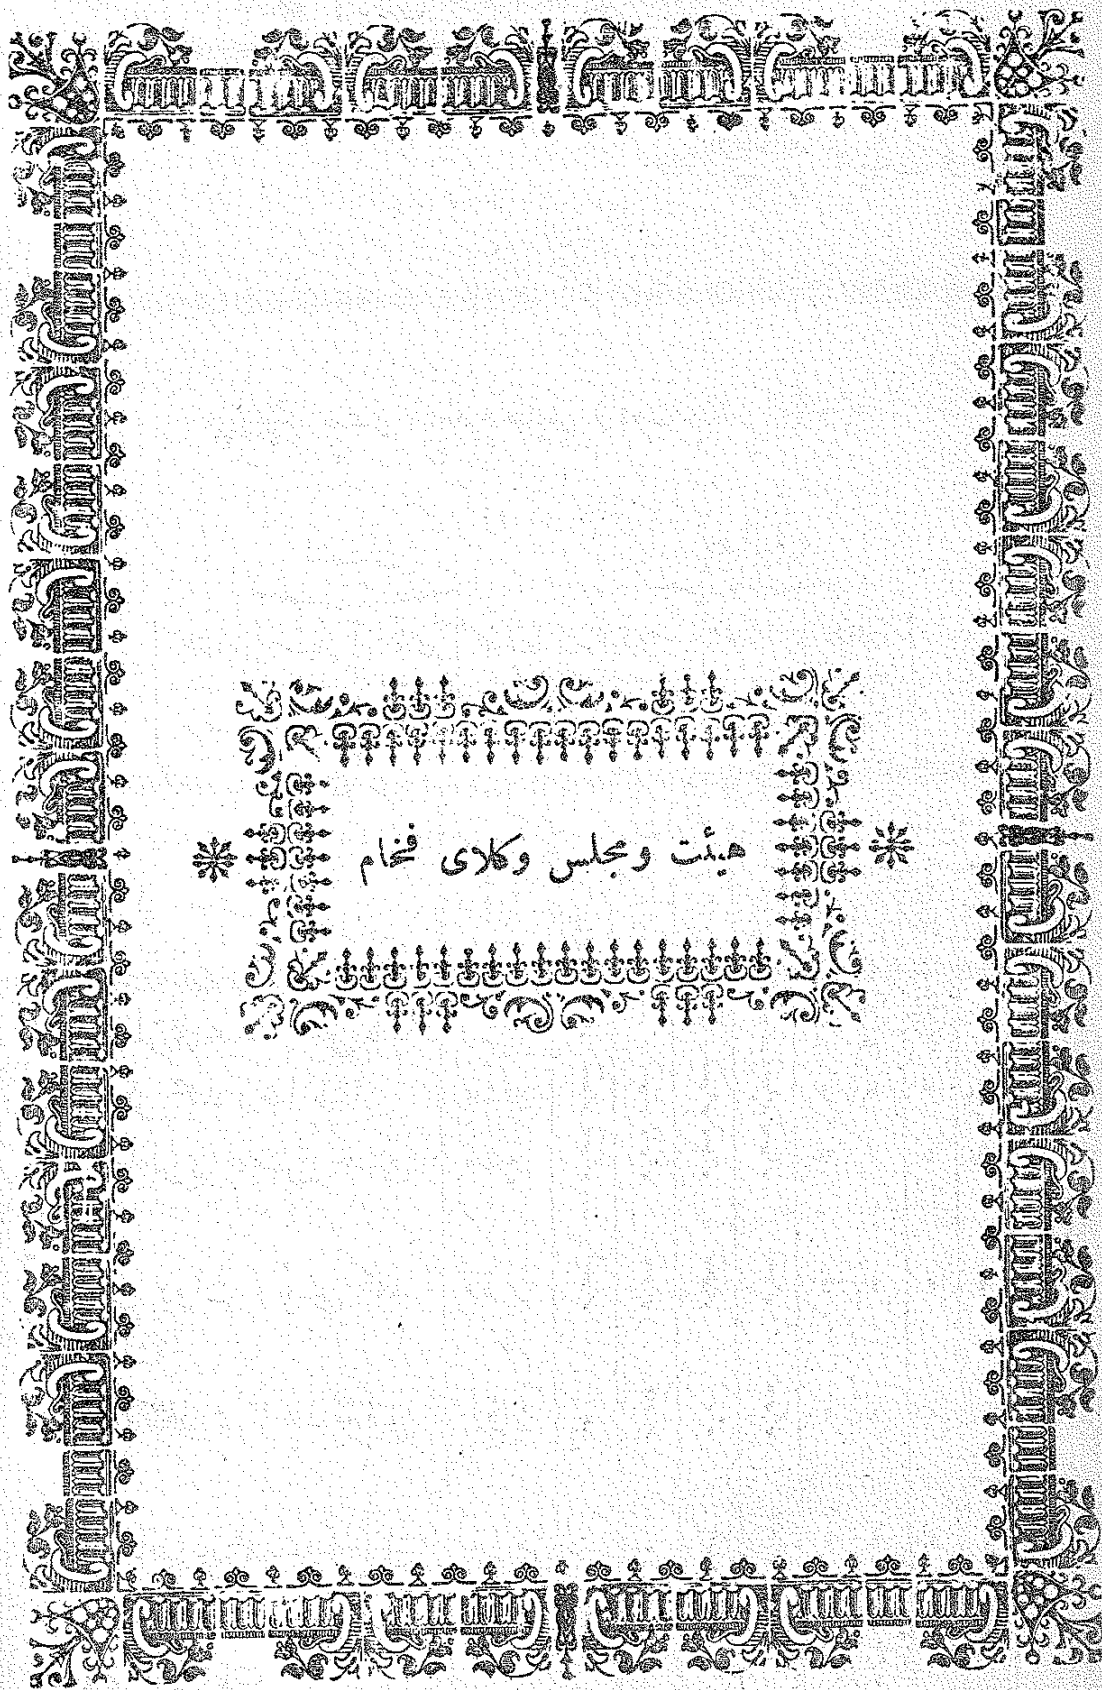 هیئت ومجلس وكلای فخام